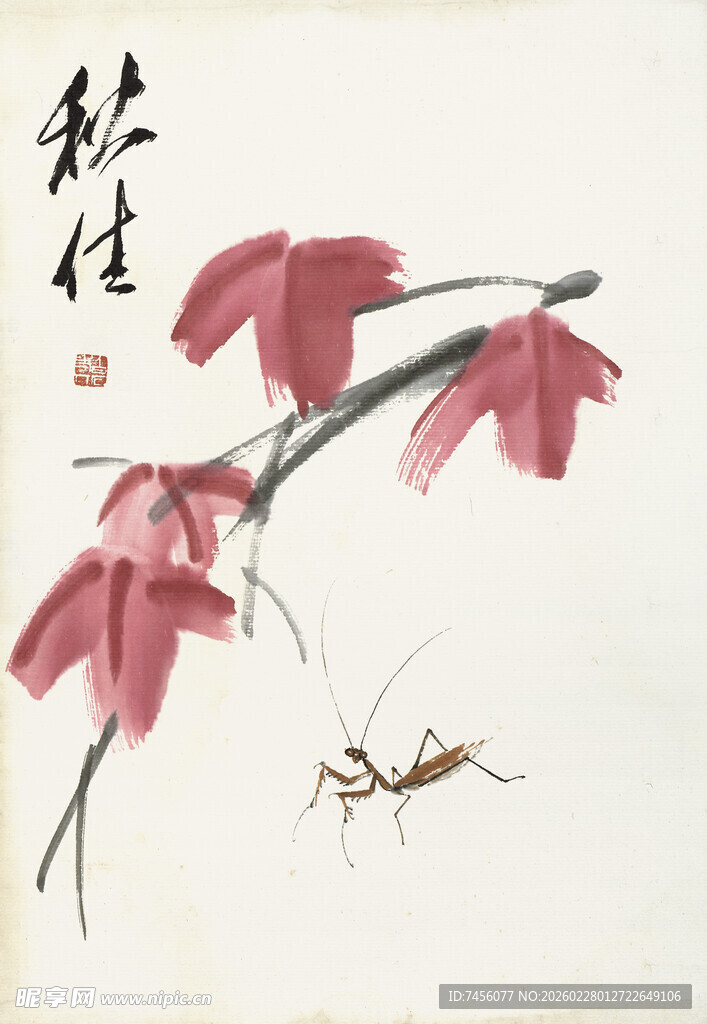 秋
佳
昵享网 www.nipic.cn
ID:7456077 NO:20260228012722649106